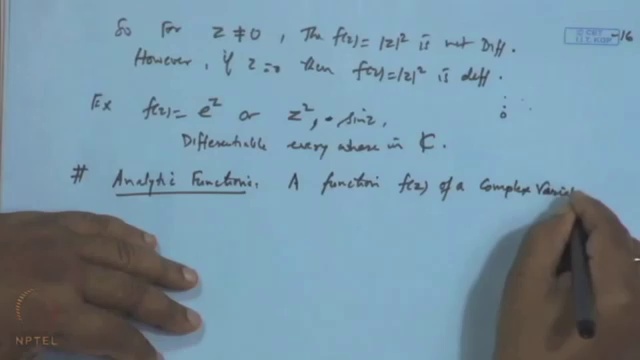 So For z ≠ 0, The f(z) = |z|² is not Diff.
However, if z = 0 then f(z) = |z|² is diff.
Ex f(z) = e^z or z², sin z,
Differentiable every where in ₵.
# Analytic Functions. A function f(z) of a Complex Variab
-16
NPTEL